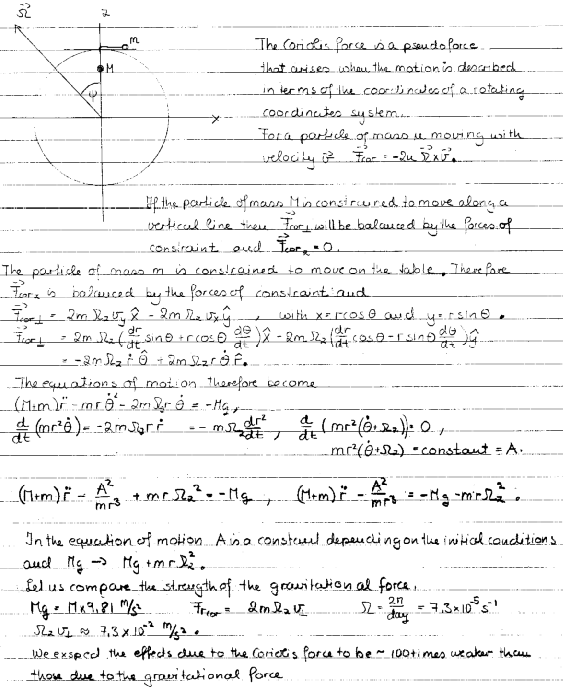 Ω⃗ z
m
M
φ
x
The Coriolis force is a pseudoforce
that arises when the motion is described
in terms of the coordinates of a rotating
coordinates system.
For a particle of mass m moving with
velocity v⃗ F⃗cor = -2m Ω⃗×v⃗.
If the particle of mass M is constrained to move along a
vertical line then F⃗cor⊥ will be balanced by the forces of
constraint and F⃗cor z = 0.
The particle of mass m is constrained to move on the table. Therefore
F⃗cor z is balanced by the forces of constraint and
F⃗cor⊥ = 2m Ωz vy x̂ - 2m Ωz vx ŷ , with x = r cosθ and y = r sinθ.
F⃗cor⊥ = 2m Ωz (dr/dt sinθ + r cosθ dθ/dt) x̂ - 2m Ωz (dr/dt cosθ - r sinθ dθ/dt) ŷ
= -2m Ωz ṙ θ̂ + 2m Ωz r θ̇ r̂.
The equations of motion therefore become
(M+m) r̈ - m r θ̇² - 2m Ωz r θ̇ = -Mg,
d/dt (mr² θ̇) = -2m Ωz r ṙ = -m Ωz dr²/dt , d/dt (mr² (θ̇ + Ωz)) = 0 ,
mr² (θ̇ + Ωz) = constant = A.
(M+m) r̈ - A²/mr³ + m r Ωz² = -Mg , (M+m) r̈ - A²/mr³ = -Mg - m r Ωz² .
In the equation of motion A is a constant depending on the initial conditions
and Mg → Mg + m r Ωz² .
Let us compare the strength of the gravitational force,
Mg = M×9,81 m/s² Fcor = 2m Ωz v⊥ Ω = 2π/day = 7.3×10⁻⁵ s⁻¹
Ωz v⊥ ≈ 7.3×10⁻² m/s² .
We exspect the effects due to the Coriolis force to be ~ 100 times weaker than
those due to the gravitational force